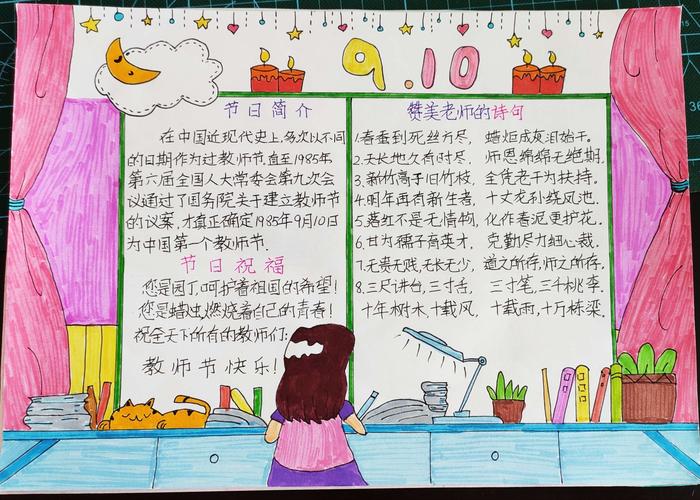 9.10
节日简介
在中国近现代史上,多次以不同
的日期作为过教师节.直至1985年
第六届全国人大常委会第九次会
议通过了国务院关于建立教师节
的议案,才真正确定1985年9月10日
为中国第一个教师节.
节日祝福
您是园丁,呵护着祖国的希望!
您是蜡烛,燃烧着自己的青春!
祝全天下所有的教师们:
教师节快乐!
赞美老师的诗句
1.春蚕到死丝方尽, 蜡炬成灰泪始干.
2.天长地久有时尽, 师恩绵绵无绝期.
3.新竹高于旧竹枝, 全凭老干为扶持.
4.明年再有新生者, 十丈龙孙绕凤池.
5.落红不是无情物, 化作春泥更护花.
6.甘为孺子育英才, 克勤尽力细心裁.
7.无贵无贱,无长无少, 道之所存,师之所存.
8.三尺讲台,三寸舌, 三寸笔,三千桃李.
十年树木,十载风, 十载雨,十万栋梁.